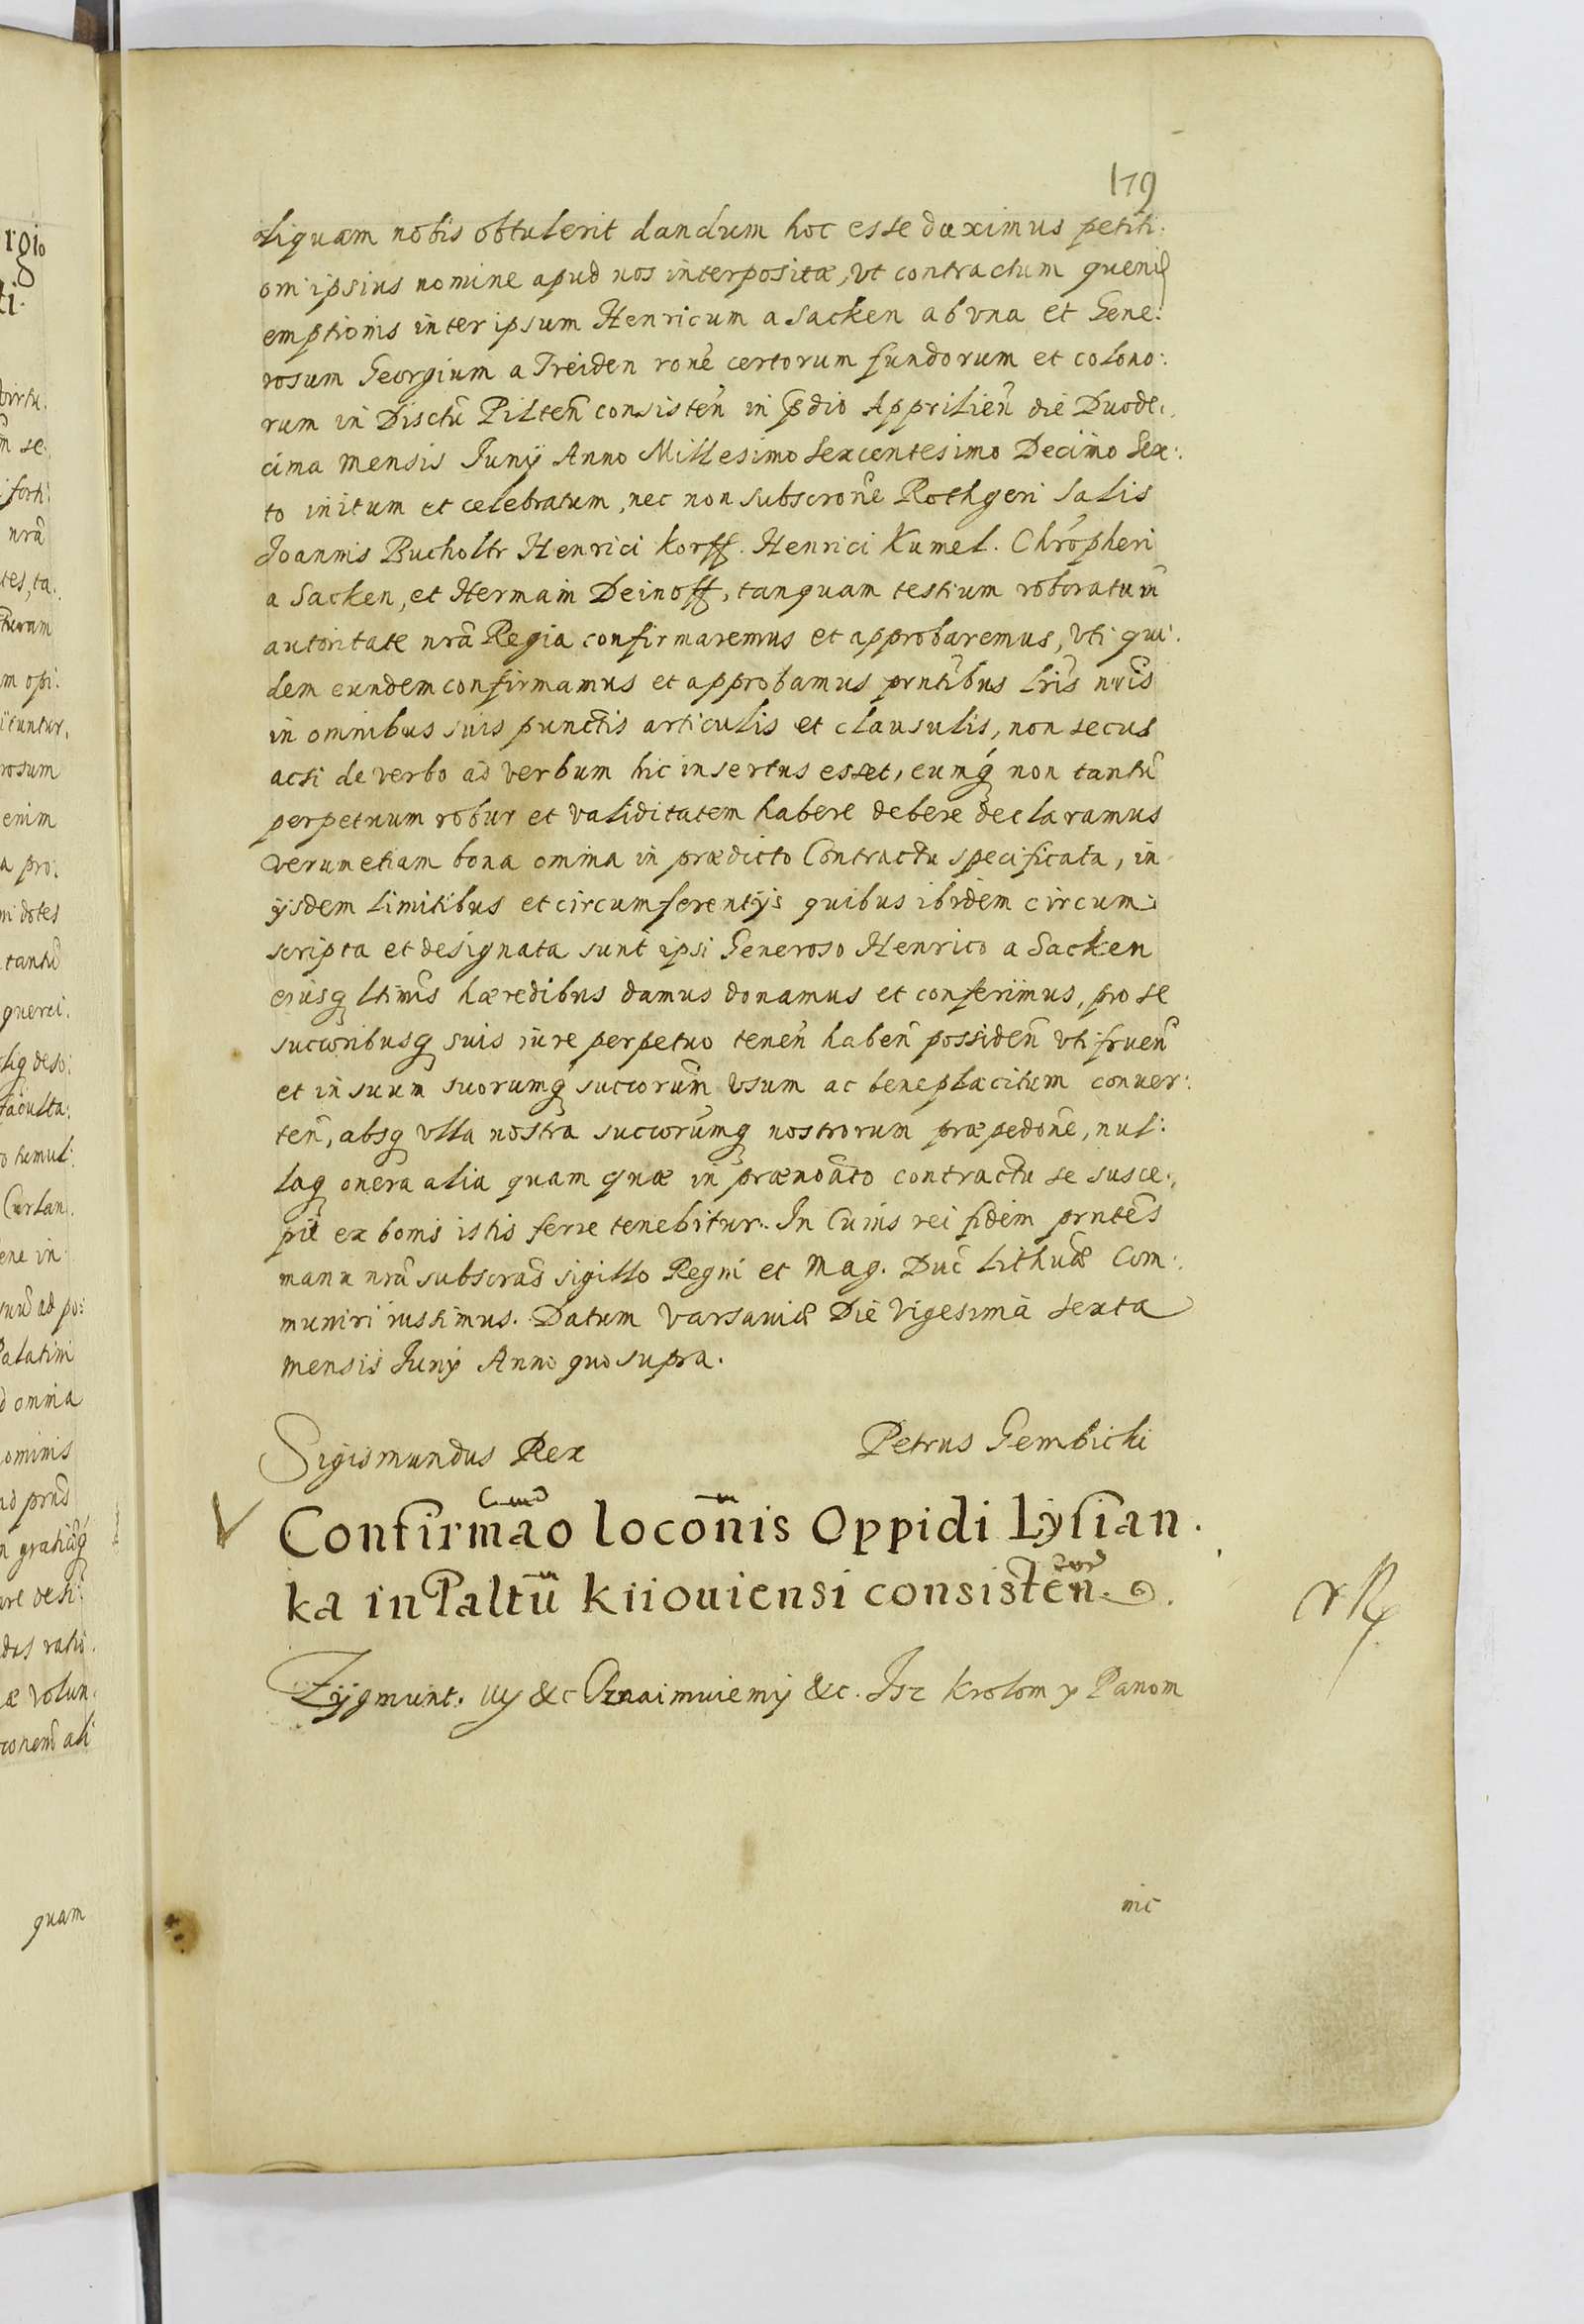 179
aliquam nobis obtulerit dandum hoc esse duximus petiti:
oni ipsius nomine apud nos interpositæ, vt contractum
emptionis inter ipsum Henricum a Sacken ab vna et Gene:
rosum Georgium a Treiden rone certorum fundorum et colono:
rum in Disctu Pilten consisten in Apprilien die Duode:
cima mensis Iunÿ Anno Millesimo Sexcentesimo Decimo Sex:
to initum et celebratum, nec non subscrone Rothgeri Salis
Joannis Bucholtr Henrici Korff. Henrici Kumel. Chropheri
a Sacken, et Hermain Deinoff, tanquam testium roboratum
autoritate nrâ Regia confirmaremus et approbaremus, vti qui:
dem eundem confirmamus et approbamus prntibus lris nris
in omnibus suis punctis articulis et clausulis, non secus
acsi de verbo ad verbum hic insertus esset, eumq non tantu
perpetuum robur et validitatem habere debere declaramus
verumetiam bona omnia in prædicto Contractu specificata, in
ÿsdem limitibus et circumferentÿs quibus ibidem circum:
scripta et designata sunt ipsi Generoso Henrico a Sacken
eiusq ltimis hæredibus damus donamus et conferimus, pro se
succoribusq suis iure perpetuo tenen haben possiden vti fruen
et in suum suorumq succorum vsum ac beneplacitum conuer:
ten, absq vlla nostra succorumq nostrorum præpedone, nul:
laq onera alia quam quæ in prænoato contractu se susce:
pit ex bonis istis ferre tenebitur. In Cuius rei fidem prntes
manu nrâ subscras sigillo Regni et Mag. Duc Lithuæ Com:
muniri iussimus. Datum Varsauiæ Die Vigesima sexta
mensis Iunÿ Anno quo supra.
Sigismundus Rex Petrus Gembicki
Confirmao loconis Oppidi Lysian.
ka in Paltu kiiouiensi consisten.
Zÿgmunt. IIIÿ &c Oznaimuiemÿ &c. Isz Krolom y Panom
nic